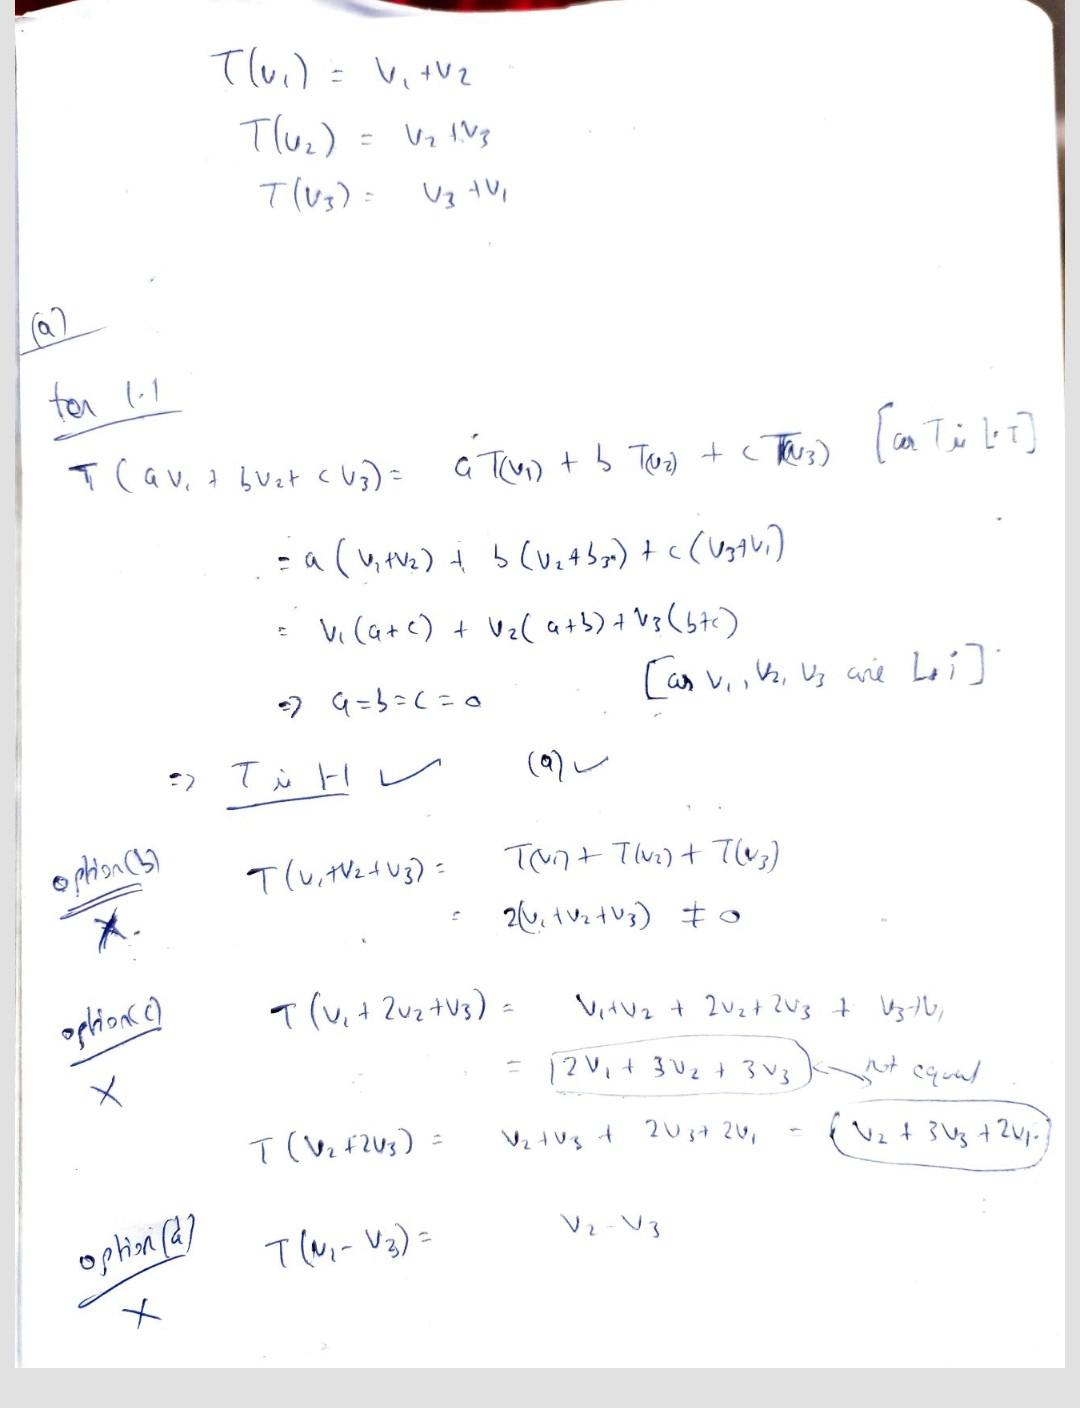 T(v₁) = v₁+v₂
T(v₂) = v₂+v₃
T(v₃) = v₃+v₁
(a)
for 1.1
T(av₁ + bv₂+ cv₃) = aT(v₁) + b T(v₂) + c T(v₃) [as T is L.T]
= a(v₁+v₂) + b(v₂+b₃) + c(v₃+v₁)
= v₁(a+c) + v₂(a+b) + v₃(b+c)
[as v₁, v₂, v₃ are L.i]
⇒ a=b=c=0
⇒ T is 1-1 ✓ (a) ✓
option(b) T(v₁+v₂+v₃) = T(v₁) + T(v₂) + T(v₃)
X. = 2(v₁+v₂+v₃) ≠ 0
option(c) T(v₁+2v₂+v₃) = v₁+v₂ + 2v₂+2v₃ + v₃+v₁
X = 2v₁ + 3v₂ + 3v₃ not equal
T(v₂+2v₃) = v₂+v₃ + 2v₃+2v₁ = v₂ + 3v₃ +2v₁.
option(d) T(v₁- v₃) = v₂-v₃
X